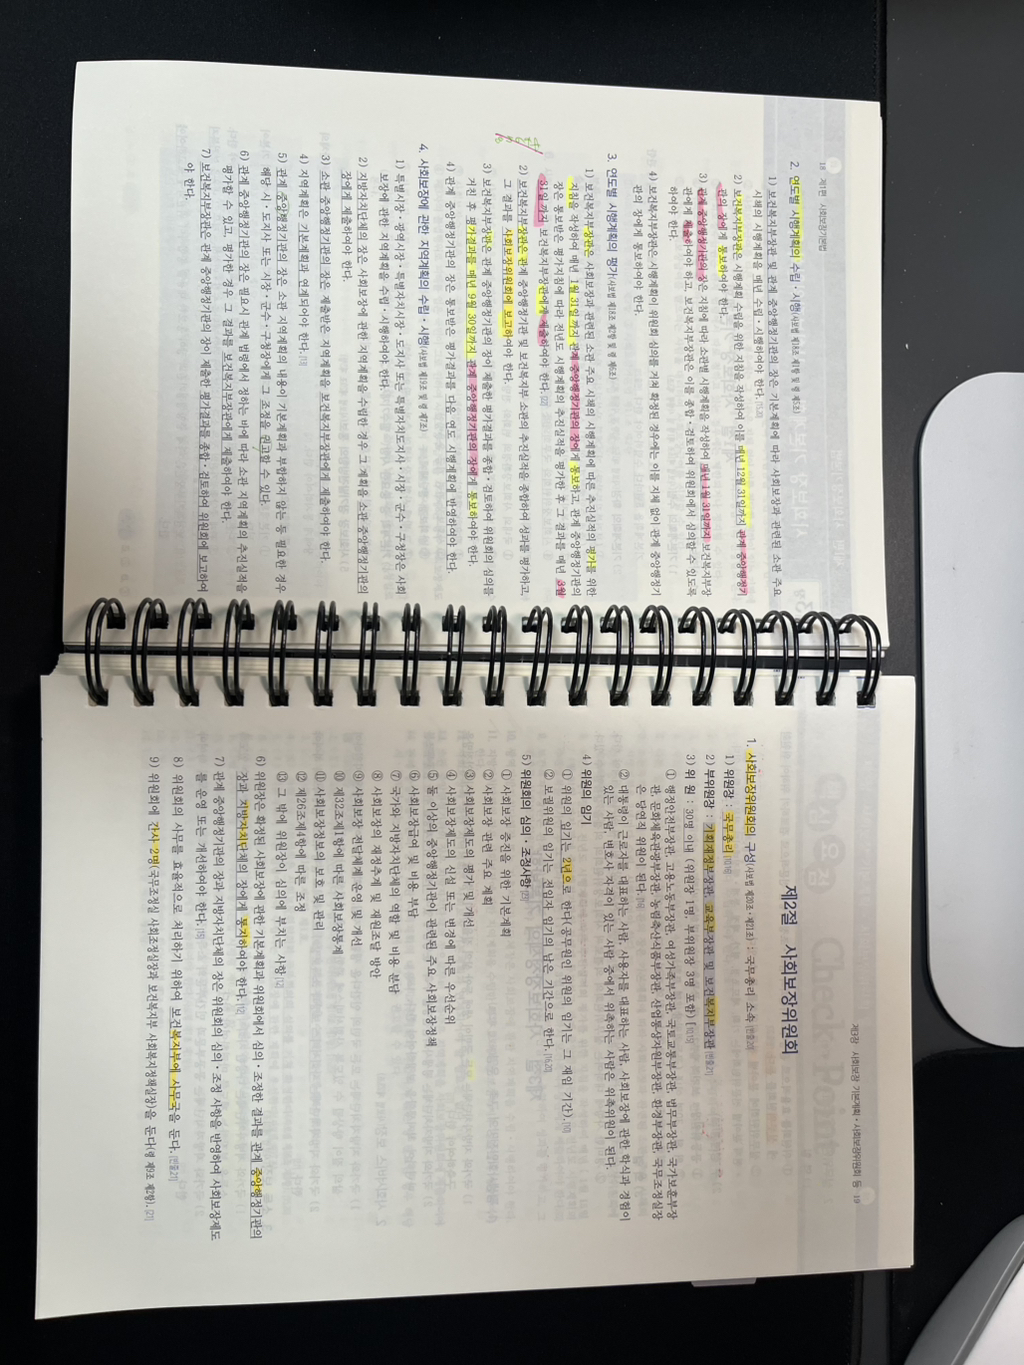 18 제1편 사회보장기본법
2. 연도별 시행계획의 수립·시행(사보법 제18조 제1항 및 령 제5조)
1) 보건복지부장관 및 관계 중앙행정기관의 장은 기본계획에 따라 사회보장과 관련된 소관 주요
시책의 시행계획을 매년 수립·시행하여야 한다.
2) 보건복지부장관은 시행계획 수립을 위한 지침을 작성하여 이를 매년 12월 31일까지 관계 중앙행정기
관의 장에게 통보하여야 한다.
3) 관계 중앙행정기관의 장은 지침에 따라 소관별 시행계획을 작성하여 매년 1월 31일까지 보건복지부장
관에게 제출하여야 하고, 보건복지부장관은 이를 종합·검토하여 위원회에서 심의할 수 있도록
하여야 한다.
4) 보건복지부장관은 시행계획이 위원회 심의를 거쳐 확정된 경우에는 이를 지체 없이 관계 중앙행정기
관의 장에게 통보하여야 한다.
3. 연도별 시행계획의 평가(사보법 제18조 제2항 및 령 제6조)
1) 보건복지부장관은 사회보장과 관련된 소관 주요 시책의 시행계획에 따른 추진실적의 평가를 위한
지침을 작성하여 매년 1월 31일까지 관계 중앙행정기관의 장에게 통보하고, 관계 중앙행정기관의
장은 통보받은 평가지침에 따라 전년도 시행계획의 추진실적을 평가한 후 그 결과를 매년 3월
31일까지 보건복지부장관에게 제출하여야 한다.[22]
2) 보건복지부장관은 관계 중앙행정기관 및 보건복지부 소관의 추진실적을 종합하여 성과를 평가하고,
그 결과를 사회보장위원회에 보고하여야 한다.
3) 보건복지부장관은 관계 중앙행정기관의 장이 제출한 평가결과를 종합·검토하여 위원회의 심의를
거친 후 평가결과를 매년 9월 30일까지 관계 중앙행정기관의 장에게 통보하여야 한다.
4) 관계 중앙행정기관의 장은 통보받은 평가결과를 다음 연도 시행계획에 반영하여야 한다.
4. 사회보장에 관한 지역계획의 수립·시행(사보법 제19조 및 령 제7조)
1) 특별시장·광역시장·특별자치시장·도지사 또는 특별자치도지사·시장·군수·구청장은 사회
보장에 관한 지역계획을 수립·시행하여야 한다.
2) 지방자치단체의 장은 사회보장에 관한 지역계획을 수립한 경우 그 계획을 소관 중앙행정기관의
장에게 제출하여야 한다.
3) 소관 중앙행정기관의 장은 제출받은 지역계획을 보건복지부장관에게 제출하여야 한다.
4) 지역계획은 기본계획과 연계되어야 한다.[13]
5) 관계 중앙행정기관의 장은 소관 지역계획의 내용이 기본계획과 부합하지 않는 등 필요한 경우
해당 시·도지사 또는 시장·군수·구청장에게 그 조정을 권고할 수 있다.
6) 관계 중앙행정기관의 장은 필요시 관계 법령에서 정하는 바에 따라 소관 지역계획의 추진실적을
평가할 수 있고, 평가한 경우 그 결과를 보건복지부장관에게 제출하여야 한다.
7) 보건복지부장관은 관계 중앙행정기관의 장이 제출한 평가결과를 종합·검토하여 위원회에 보고하여
야 한다.
제3장 사회보장 기본계획·사회보장위원회 등 19
제2절 사회보장위원회
1. 사회보장위원회의 구성(사보법 제20조·제21조) : 국무총리 소속[빈출20]
1) 위원장 : 국무총리[10,16]
2) 부위원장 : 기획재정부장관, 교육부장관 및 보건복지부장관[빈출21]
3) 위 원 : 30명 이내 (위원장 1명, 부위원장 3명 포함) [10,15]
① 행정안전부장관, 고용노동부장관, 여성가족부장관, 국토교통부장관, 법무부장관, 국가보훈부장
관, 문화체육관광부장관, 농림축산식품부장관, 산업통상자원부장관, 환경부장관, 국무조정실장
은 당연직 위원이 된다.[14]
② 대통령이 근로자를 대표하는 사람, 사용자를 대표하는 사람, 사회보장에 관한 학식과 경험이
있는 사람, 변호사 자격이 있는 사람 중에서 위촉하는 사람은 위촉위원이 된다.
4) 위원의 임기
① 위원의 임기는 2년으로 한다(공무원인 위원의 임기는 그 재임 기간).[10]
② 보궐위원의 임기는 전임자 임기의 남은 기간으로 한다.[16,20]
5) 위원회의 심의·조정사항[15]
① 사회보장 증진을 위한 기본계획
② 사회보장 관련 주요 계획
③ 사회보장제도의 평가 및 개선
④ 사회보장제도의 신설 또는 변경에 따른 우선순위
⑤ 둘 이상의 중앙행정기관이 관련된 주요 사회보장정책
⑥ 사회보장급여 및 비용 부담
⑦ 국가와 지방자치단체의 역할 및 비용 분담
⑧ 사회보장의 재정추계 및 재원조달 방안
⑨ 사회보장 전달체계 운영 및 개선
⑩ 제32조제1항에 따른 사회보장통계
⑪ 사회보장정보의 보호 및 관리
⑫ 제26조제4항에 따른 조정
⑬ 그 밖에 위원장이 심의에 부치는 사항[12]
6) 위원장은 확정된 사회보장에 관한 기본계획과 위원회에서 심의·조정한 결과를 관계 중앙행정기관의
장과 지방자치단체의 장에게 통지하여야 한다.[12]
7) 관계 중앙행정기관의 장과 지방자치단체의 장은 위원회의 심의·조정 사항을 반영하여 사회보장제도
를 운영 또는 개선하여야 한다.[15]
8) 위원회의 사무를 효율적으로 처리하기 위하여 보건복지부에 사무국을 둔다.[빈출21]
9) 위원회에 간사 2명(국무조정실 사회조정실장과 보건복지부 사회복지정책실장)을 둔다(령 제9조 제2항).[21]